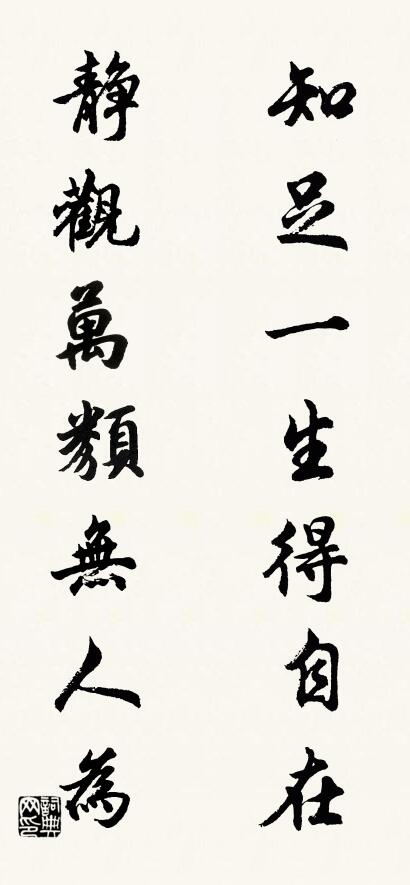 知足一生得自在
静觀萬類無人為
詞典网印